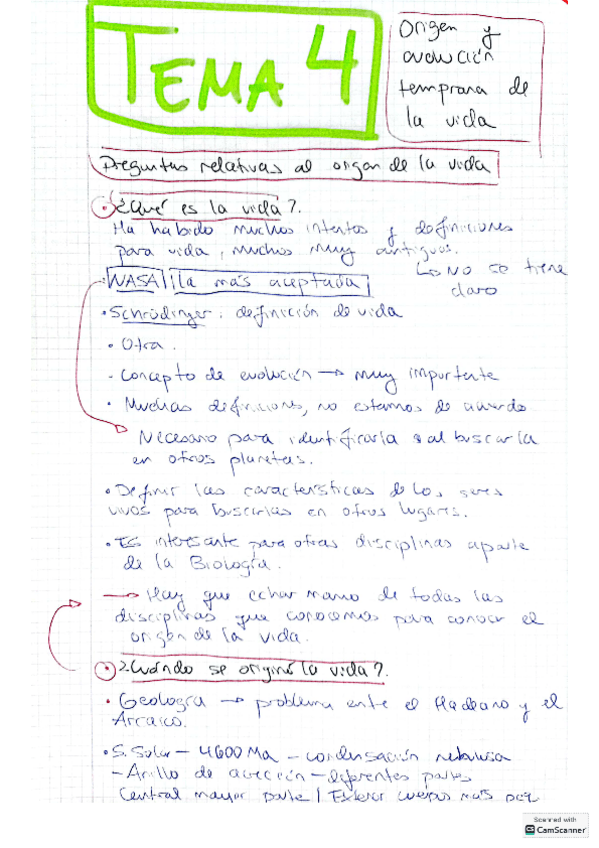 TEMA 4
Origen y
evolución
temprana de
la vida
Preguntas relativas al origen de la vida
¿Qué es la vida?.
Ha habido muchos intentos y definiciones
para vida, muchos muy antiguos.
Lo NO se tiene
claro
NASA | la más aceptada
• Schrödinger: definición de vida
• Otra.
- Concepto de evolución → muy importante
• Muchas definiciones, no estamos de acuerdo.
Necesario para identificarla al buscarla
en otros planetas.
• Definir las características de los seres
vivos para buscarlas en otros lugares.
• Es interesante para otras disciplinas aparte
de la Biología.
→ Hay que echar mano de todas las
disciplinas que conocemos para conocer el
origen de la vida.
¿Cuándo se originó la vida?.
• Geología → problema ente el Hadeano y el
Arcaico.
• S. Solar - 4600 Ma - condensación nebulosa
- Anillo de acreción - diferentes partes
Central mayor parte | Exterior cuerpos más peq
Scanned with
CamScanner